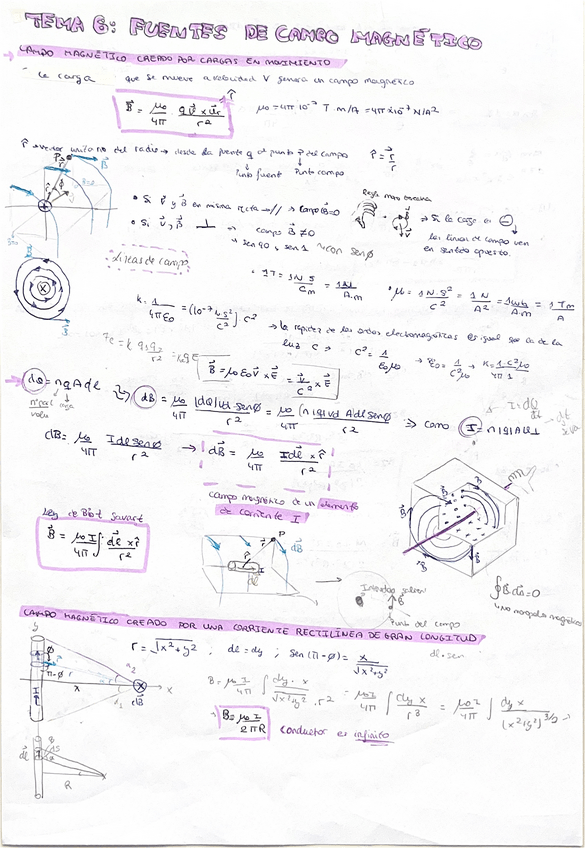 TEMA 6: FUENTES DE CAMPO MAGNÉTICO
CAMPO MAGNÉTICO CREADO POR CARGAS EN MOVIMIENTO
- La carga que se mueve a velocidad V genera un campo magnético
B⃗ = μ₀/4π · q v⃗ × u⃗r / r²
μ₀ = 4π 10⁻⁷ T·m/A = 4π×10⁻⁷ N/A²
r̂ → vector unitario del radio → desde la fuente q al punto P del campo
r̂ = r⃗/r
Punto fuente
Punto campo
• Si V⃗ y B⃗ en misma recta → // → Campo B=0
Regla mano derecha
• Si v⃗, B⃗ ⊥ → campo B⃗ ≠ 0
" sen 90 = sen 1 " → con sen φ
→ Si la carga es ⊖
las líneas de campo van
en sentido opuesto.
Líneas de campo
• 1T = 1 N·s / C·m = 1N / A·m
• μ = 1 N·s²/C² = 1 N/A² = 1 Wb/A·m = 1 Tm/A
k = 1/4πε₀ = (10⁻⁷ N·s²/C²) · c²
→ la rapidez de las ondas electromagnéticas es igual que la de la
luz c → c² = 1/ε₀μ₀ → ε₀ = 1/c²μ₀ → k = 1/4π c²μ₀/1
B⃗ = μ₀ε₀ v⃗ × E⃗ = v⃗/c² × E⃗
dQ = n q A dl → dB = μ₀/4π |dQ| vd senφ / r² = μ₀/4π (n |q| vd A dl senφ) / r² ⇒ como I = n |q| Ad
I = dQ/dt
dB = μ₀/4π I dl senφ / r² → dB⃗ = μ₀/4π I dl⃗ × r̂ / r²
Campo magnético de un elemento
de corriente I
Ley de Biot Savart
B⃗ = μ₀ I/4π ∫ dl⃗ × r̂ / r²
P
dB⃗
dl⃗
Punto del campo
∮ B⃗ ds = 0
↳ No monopolo magnético
CAMPO MAGNÉTICO CREADO POR UNA CORRIENTE RECTILÍNEA DE GRAN LONGITUD
r = √x²+y² ; dl = dy ; sen (π-φ) = x/√x²+y²
dl · sen
B = μ₀ I/4π ∫ dy · x / √x²+y² · r² = μ₀ I/4π ∫ dy x / r³ = μ₀ I/4π ∫ dy x / (x²+y²)^3/2
B = μ₀ I / 2πR
conductor es infinito